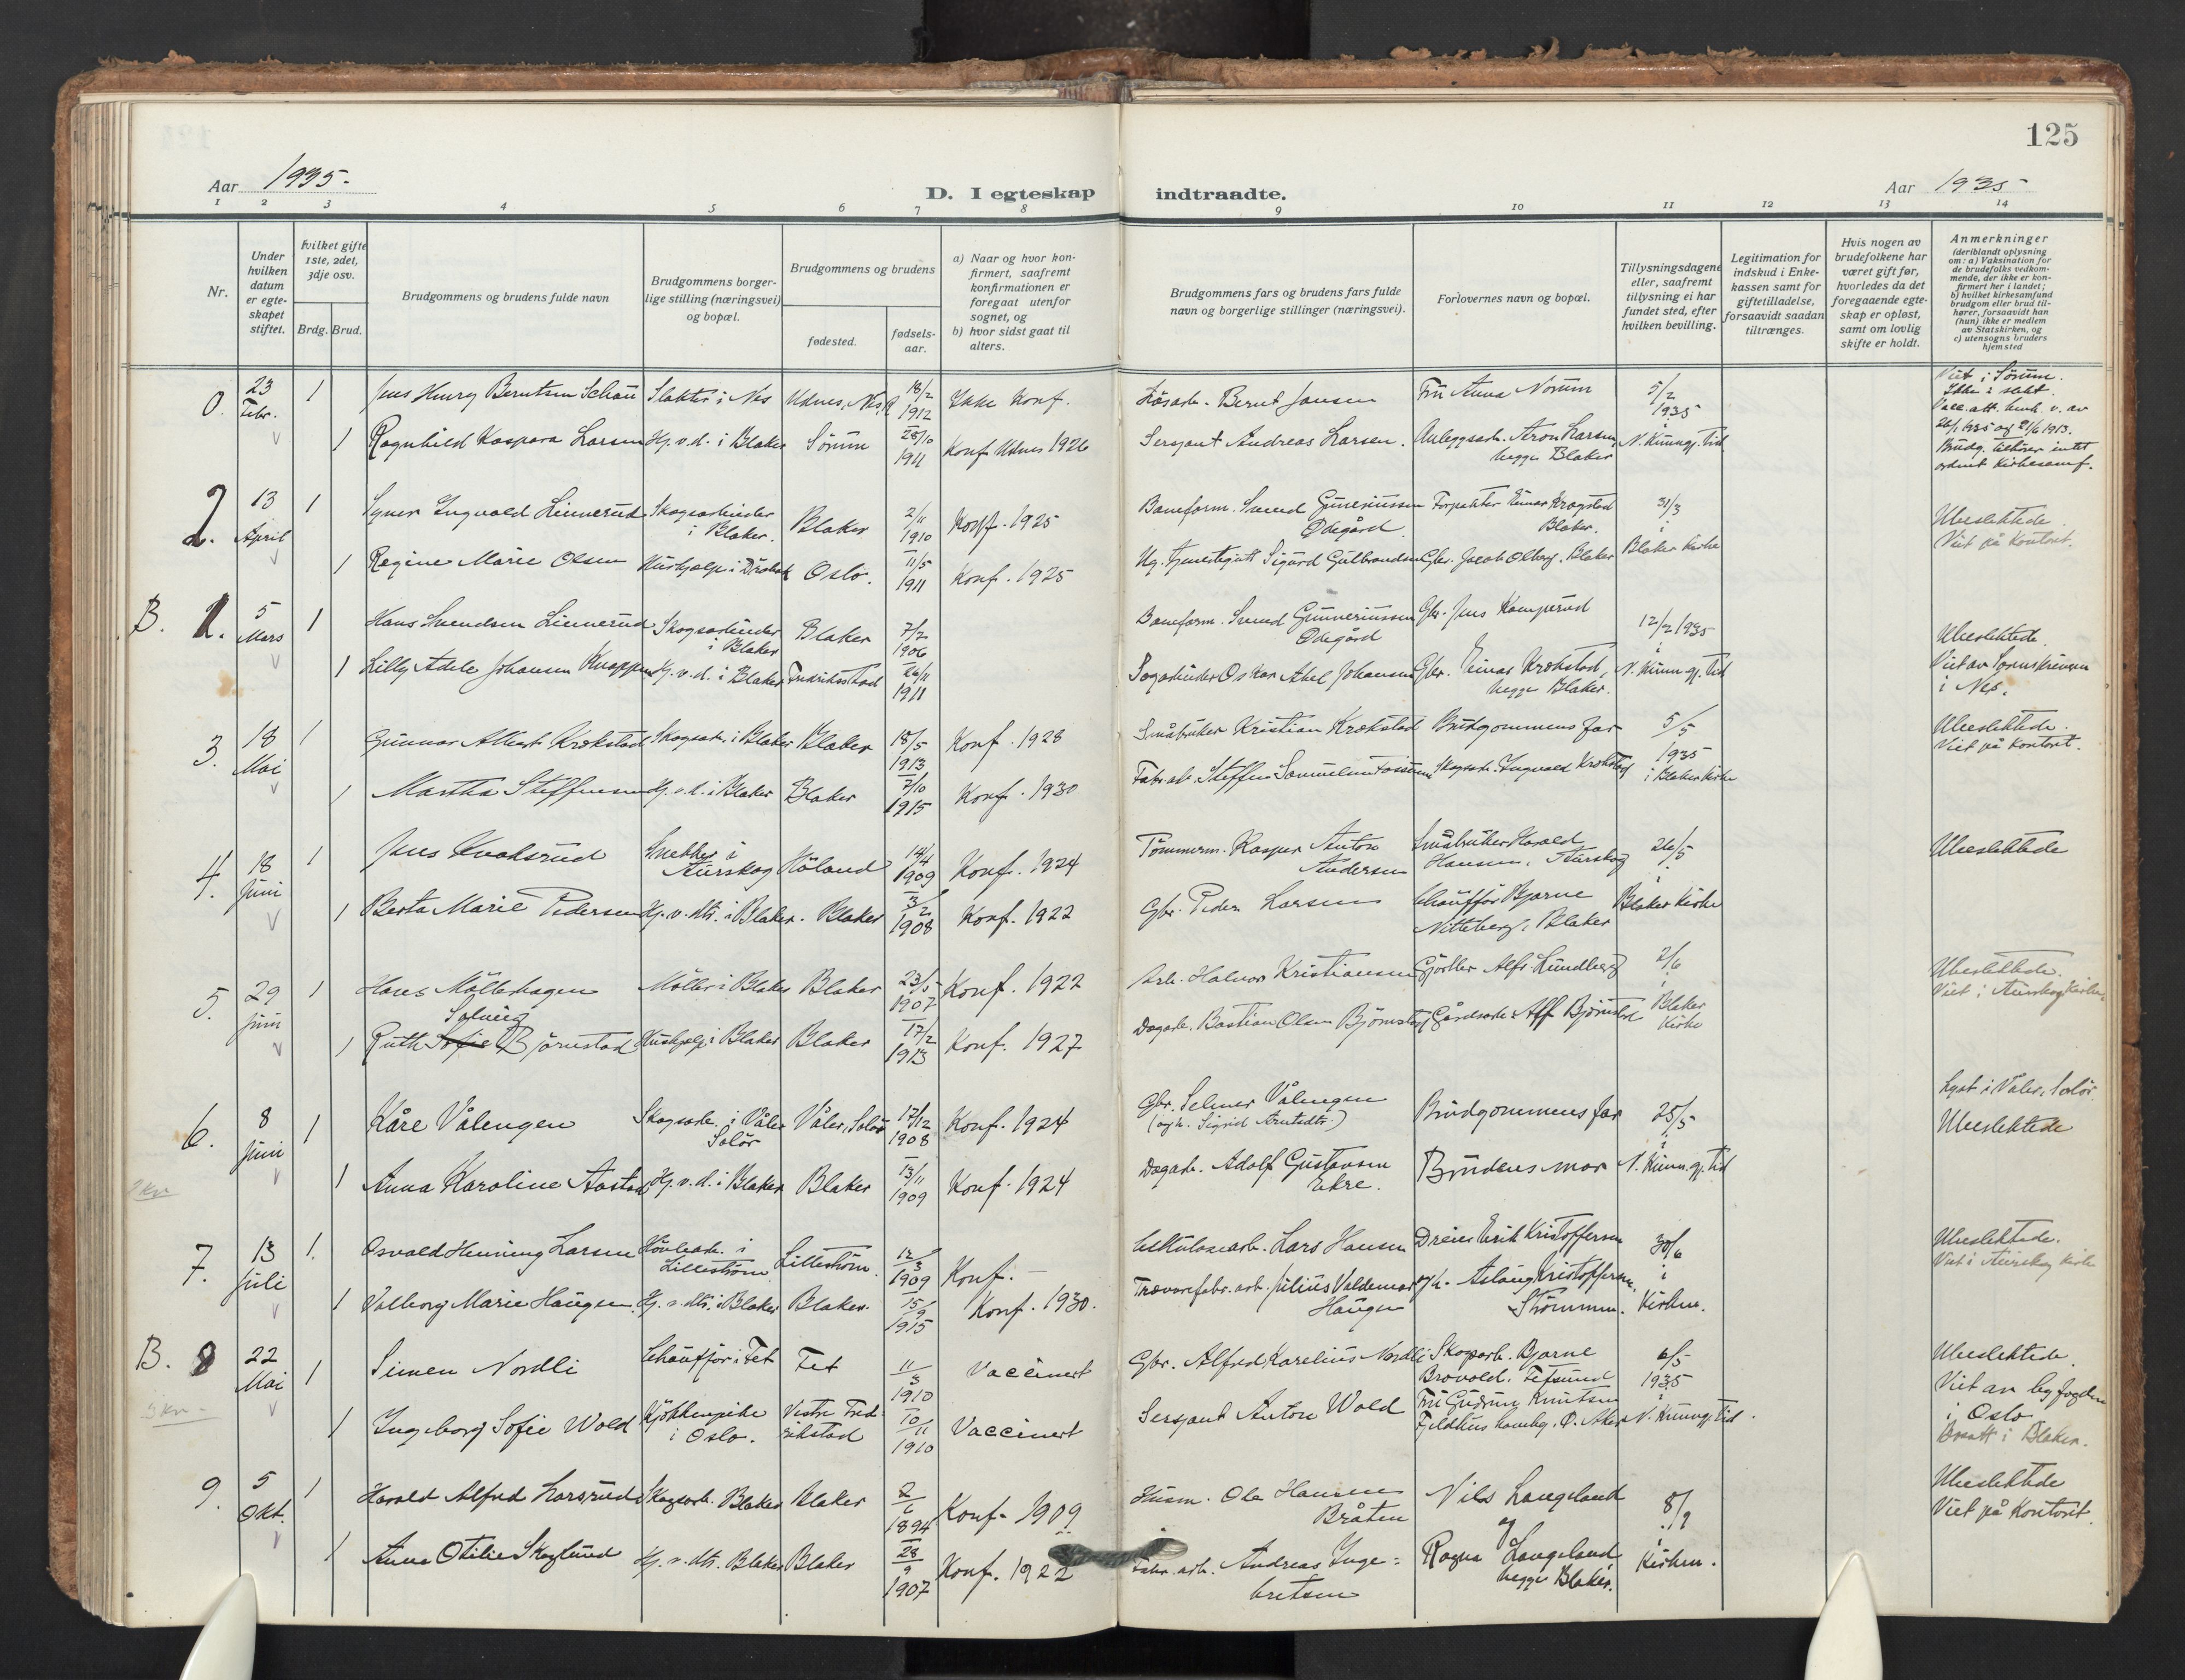 125
Aar 1935.
D. I egteskap indtraadte.
Aar 1935
1 2 3 4 5 6 7 8 9 10 11 12 13 14
Nr.
Under hvilken datum er egteskapet stiftet.
Hvilket gifte 1ste, 2det, 3dje osv.
Brdg. Brud.
Brudgommens og brudens fulde navn
Brudgommens borgerlige stilling (næringsvei) og bopæl.
Brudgommens og brudens
fødested.
fødselsaar.
a) Naar og hvor konfirmert, saafremt konfirmationen er foregaat utenfor sognet, og
b) hvor sidst gaat til alters.
Brudgommens fars og brudens fars fulde navn og borgerlige stillinger (næringsvei).
Forlovernes navn og bopæl.
Tillysningsdagene eller, saafremt tillysning ei har fundet sted, efter hvilken bevilling.
Legitimation for indskud i Enkekassen samt for giftetilladelse, forsaavidt saadan tiltrænges.
Hvis nogen av brudefolkene har været gift før, hvorledes da det foregaaende egteskap er opløst, samt om lovlig skifte er holdt.
Anmerkninger
(deriblandt oplysning om: a) Vaksination for de brudefolks vedkommende, der ikke er konfirmert her i landet;
b) hvilket kirkesamfund brudgom eller brud tilhører, forsaavidt han (hun) ikke er medlem av Statskirken, og
c) utensogns bruders hjemsted
0. 23 Febr. 1 Jens Henry Berntsen Schau Slakter i Nes Udnes, Nes 18/2 1912 Ikke konf. Bernt Jansen Fru Anna Norum 5/2 1935 Viet i Sørum. Ikke i slekt.
1 Ragnhild Kaspara Larsen Hj. v. d. i Blaker Sørum 28/10 1911 Konf. Udnes 1926 Sersjant Andreas Larsen. Anleggsarb. Aron Larsen, begge Blaker i N. Kunngj. Tid.
2. 13 April 1 Syver Ingvald Linnerud Skogsarbeider i Blaker. Blaker 2/11 1910 Konf. 1925 Baneform. Svend Gunneriussen Ødegård Forpakter Einar Krogstad Blaker. 31/3 i Ubeslektede. Viet på kontoret.
1 Regine Marie Olsen Hushjelp i Drøbak Oslo. 11/5 1911 Konf. 1925 Ug. tjenestegutt Sigurd Gulbrandsen Gbr. Jacob Olberg, Blaker Blaker kirke
B. 1. 5 Mars 1 Hans Svendsen Linnerud Skogsarbeider i Blaker Blaker 7/2 1906 Baneform. Svend Gunneriussen Ødegård Gbr. Jens Kamperud 12/2 1935 i Ubeslektede.
1 Lilly Adele Johansen Knappen Hj. v. d. i Blaker Fredrikstad 26/11 1911 Sagarbeider Oskar Abel Johansen Gbr. Einar Krokstad, begge Blaker. N. Kunngj. Tid Viet av Sorenskriveren i Nes.
3. 18 Mai 1 Gunnar Albert Krokstad Skogsarb. i Blaker Blaker 18/5 1913 Konf. 1928 Småbruker Kristian Krokstad Brudgommens far 5/5 1935 Ubeslektede. Viet på kontoret.
1 Martha Steffensen Hj. v. d. i Blaker Blaker 7/10 1915 Konf. 1930 Fabr. arb. Steffen Samuelsen Fossum Skogsarb. Ingvald Krokstad i Blaker kirke
4. 18 Juni 1 Jens Kvaksrud Snekker i Aurskog Höland 14/4 1909 Konf. 1924 Tömmerm. Kasper Anton Andersen Småbruker Harald Hansen, Aurskog 26/5 i Ubeslektede
1 Berta Marie Pedersen Hj. v. dtr. i Blaker. Blaker 3/2 1908 Konf. 1922 Gbr. Peder Larsen Chaufför Bjarne Nitteberg, Blaker Blaker kirke
5. 29 Juni 1 Hans Möllerhagen Möller i Blaker Blaker 23/5 1907 Konf. 1922 Arb. Halvor Kristiansen Gjörtler Alfr. Lundberg 2/6 i Ubeslektede. Viet i Aurskog kirke
1 Ruth Sofie Solveig Björnstad Hushjelp i Blaker Blaker 17/2 1913 Konf. 1927 Dagarb. Bastian Olsen Björnstad Gårdsarb. Alf Björnstad Blaker kirke
6. 8 Juni 1 Kåre Vålengen Skogsarb. i Våler Solör Våler, Solör 17/12 1908 Konf. 1924 Gbr. Selmer Vålengen (og h. Sigrid) Brudgommens far 25/5 i Lyst i Våler, Solör. Ubeslektede
2 kr
1 Anna Karoline Aastad Hj. v. d. i Blaker Blaker 13/11 1909 Konf. 1924 Dagarb. Adolf Gustavsen Ekre. Brudens mor N. Kunngj. Tid
7. 13 Juli 1. Osvald Henning Larsen Hövlearb. i Lilleström Lilleström. 12/3 1909 Konf. — Cellulosearb. Lars Hansen Dreier Erik Kristoffersen 30/6 i Ubeslektede. Viet i Aurskog kirke
1 Valborg Marie Haugen. Hj. v. dtr. i Blaker Blaker. 15/9 1915 Konf. 1930. Trævarefabr. arb. Julius Valdemar Haugen og h. Aslaug Kristoffersen, Strömmen. Kirken.
B. 8 22 Mai 1 Simen Nordli Chauffør i Fet Fet 11/3 1910 Vaccinert Gbr. Alfred Karelius Nordli Skogsarb. Bjarne Brovold, Fetsund 6/5 1935 i Ubeslektede. Viet av byfogden i Oslo. Bosatt i Blaker.
3 kr -
1 Ingeborg Sofie Wold Kjökkenpike i Oslo. Vestre Fredrikstad 10/11 1910 Vaccinert Sersjant Anton Wold Fru Gudrun Knutsen N. Kunngj. Tid.
9. 5 Okt. 1 Harald Alfred Larsrud Skogsarb. Blaker Blaker 2/6 1894 Konf. 1909 Husm. Ole Hansen Bråten Nils Langeland og 8/9 i Ubeslektede Viet på kontoret.
1 Anna Otilie Skoglund Hj. v. dtr. Blaker Blaker 28/9 1907 Konf. 1922 Fabr. arb. Andreas Ingebretsen Ragna Langeland, begge Blaker. Kirken.